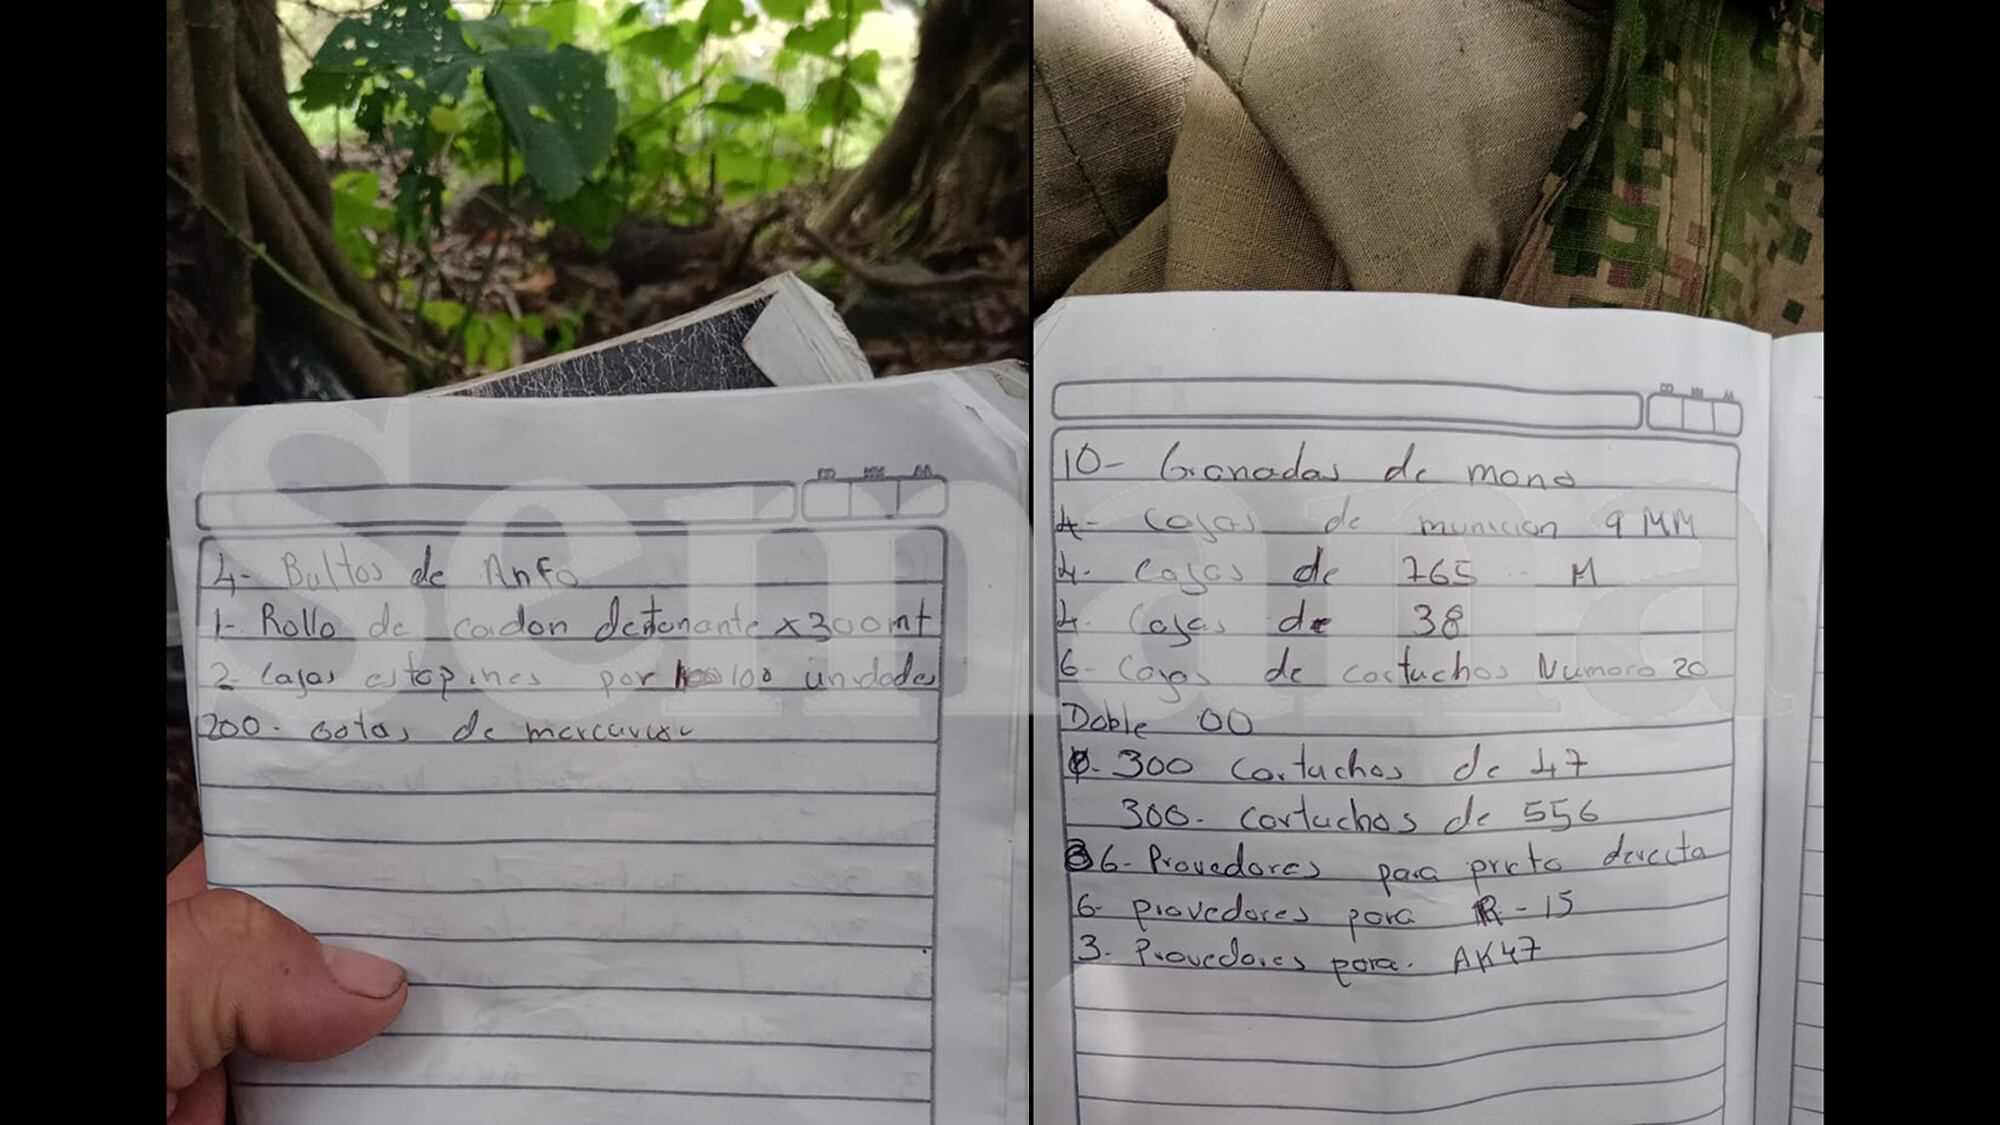 4- Bultos de Anfo
1- Rollo de cordon detonante x300mt
2- Cajas estopines por 100 unidades
200- Gotas de
10- Granadas de mano
4- Cajas de municion 9 MM
4- Cajas de 765 M
4. Cajas de 38
6- Cajas de cartuchos Numero 20
Doble 00
300 Cartuchos de 47
300- cartuchos de 556
6- Provedores para prieto devecta
6- provedores para R-15
3- Provedores para. AK47
Semana